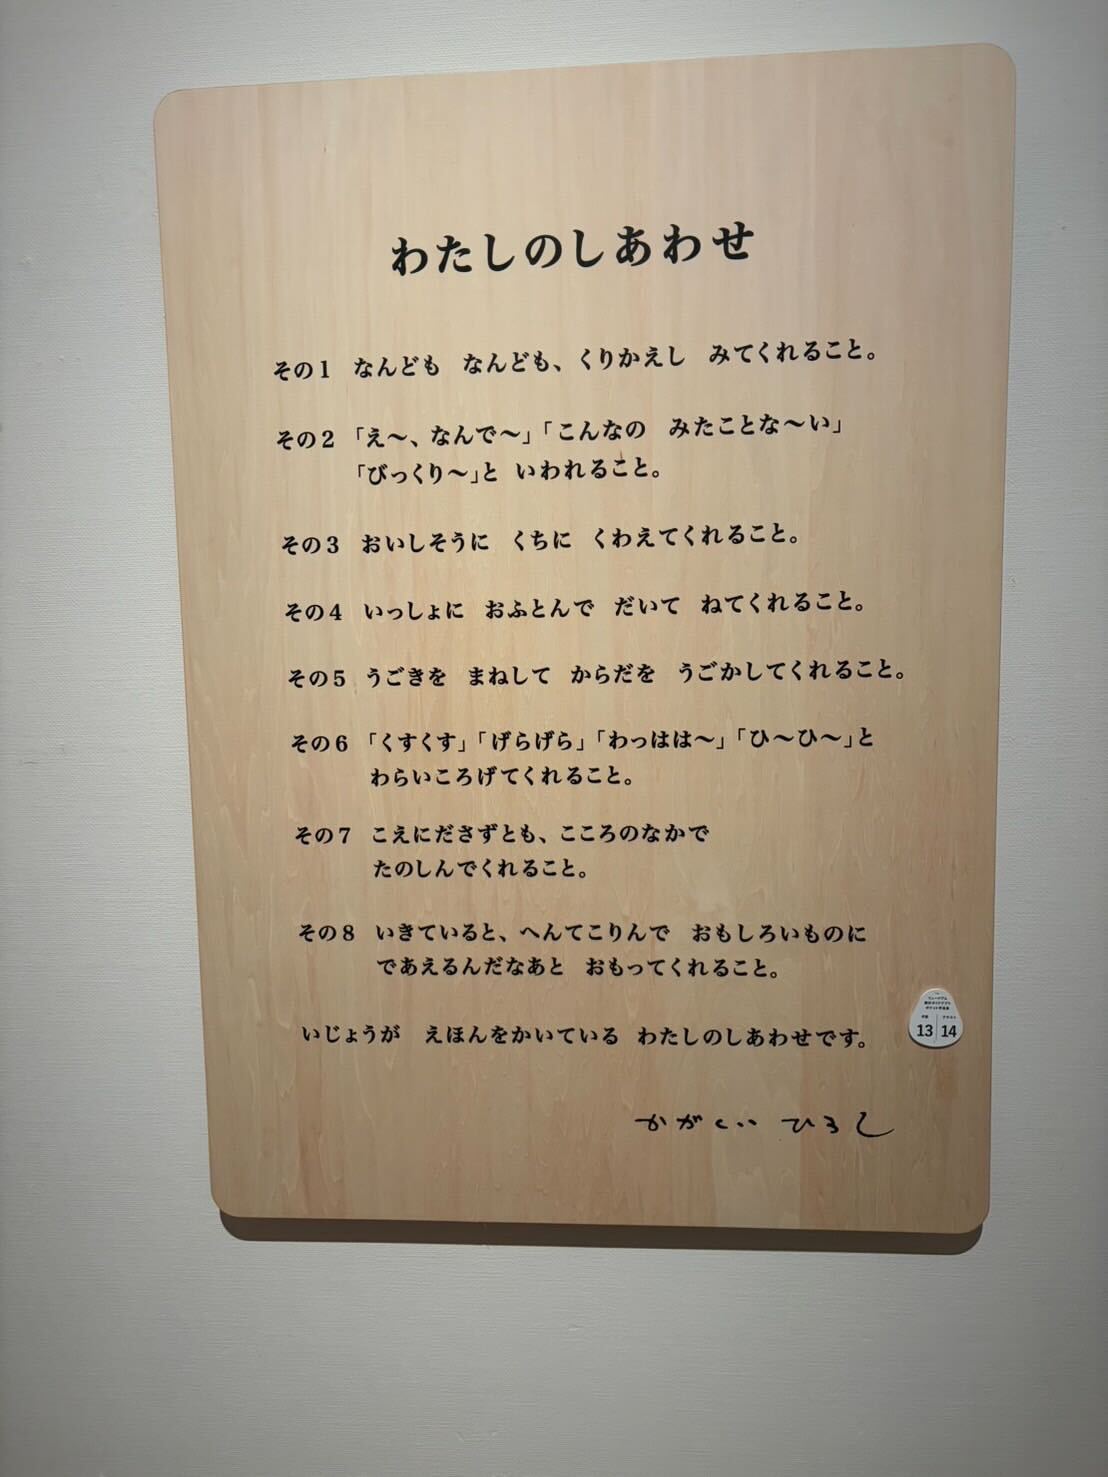 わたしのしあわせ
その1 なんども なんども、くりかえし みてくれること。
その2 「え〜、なんで〜」「こんなの みたことな〜い」
「びっくり〜」と いわれること。
その3 おいしそうに くちに くわえてくれること。
その4 いっしょに おふとんで だいて ねてくれること。
その5 うごきを まねして からだを うごかしてくれること。
その6 「くすくす」「げらげら」「わっはは〜」「ひ〜ひ〜」と
わらいころげてくれること。
その7 こえにださずとも、こころのなかで
たのしんでくれること。
その8 いきていると、へんてこりんで おもしろいものに
であえるんだなあと おもってくれること。
いじょうが えほんをかいている わたしのしあわせです。
かがくい ひろし
13 14